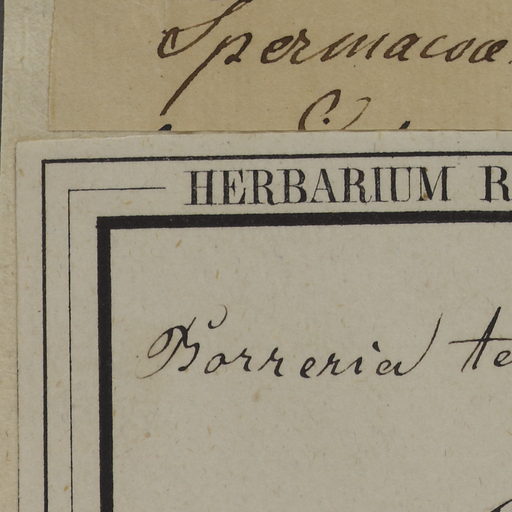 Spermacoce
HERBARIUM R
Borreria te